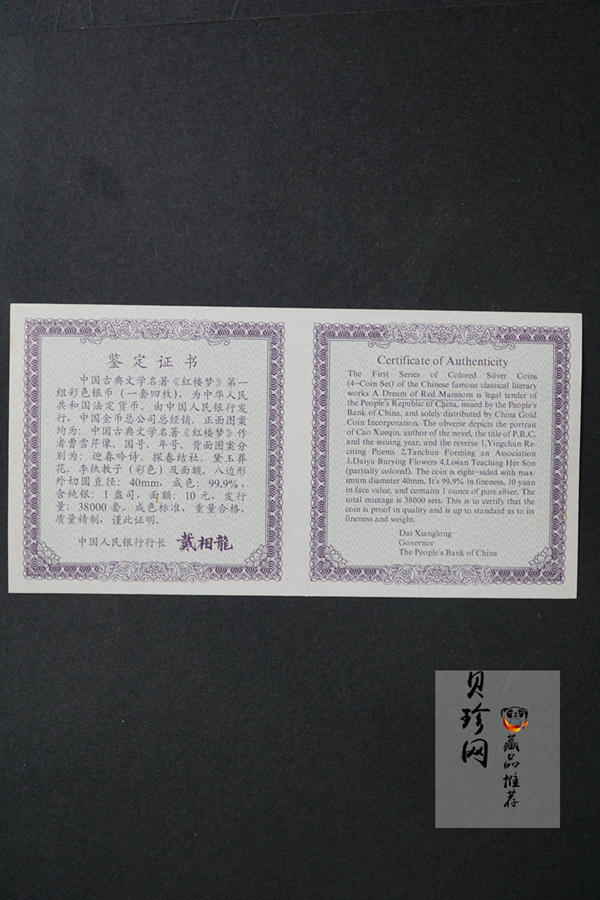 鉴定证书
中国古典文学名著《红楼梦》第一
组彩色银币（一套四枚），为中华人民
共和国法定货币。由中国人民银行发
行，中国金币总公司总经销。正面图案
均为：中国古典文学名著《红楼梦》作
者曹雪芹像、国号、年号，背面图案分
别为：迎春吟诗、探春结社、黛玉葬
花、李纨教子（彩色）及面额。八边形
外切圆直径：40mm，成色：99.9%，
含纯银：1盎司，面额：10元，发行
量：38000套。成色标准，重量合格，
质量精制，谨此证明。
中国人民银行行长 戴相龍
Certificate of Authenticity
The First Series of Colored Silver Coins
(4-Coin Set) of the Chinese famous classical literary
works A Dream of Red Mansions is legal tender of
the People's Republic of China, issued by the People's
Bank of China, and solely distributed by China Gold
Coin Incorporation. The obverse depicts the portrait
of Cao Xueqin, author of the novel, the title of P.R.C.
and the issuing year, and the reverse 1.Yingchun Re-
citing Poems 2.Tanchun Forming an Association
3.Daiyu Burying Flowers 4.Liwan Teaching Her Son
(partially colored). The coin is eight-sided with max-
imum diameter 40mm. It's 99.9% in fineness, 10 yuan
in face value, and contains 1 ounce of pure silver. The
total mintage is 38000 sets. This is to certify that the
coin is proof in quality and is up to standard as to its
fineness and weight.
Dai Xianglong
Governor
The People's Bank of China
贝珍网
藏品推荐